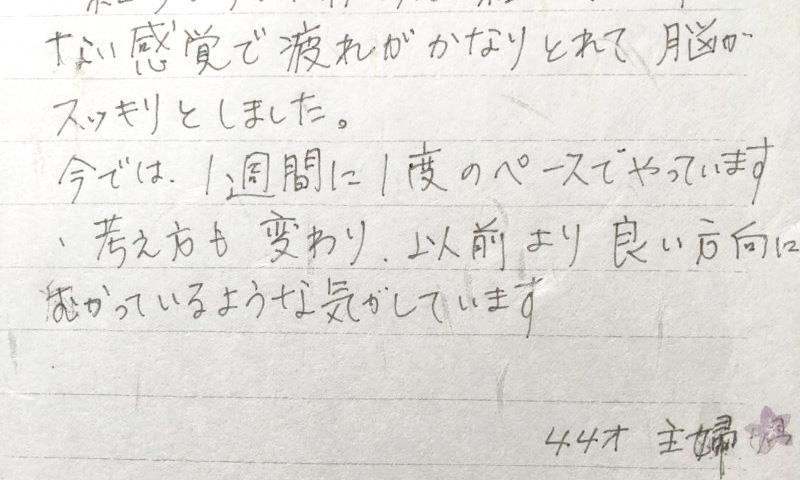 ない感覚で疲れがかなりとれて 脳が
スッキリとしました。
今では、1週間に1度のペースでやっています
、考え方も 変わり、以前より 良い方向に
むかっているような気がしています
44才 主婦